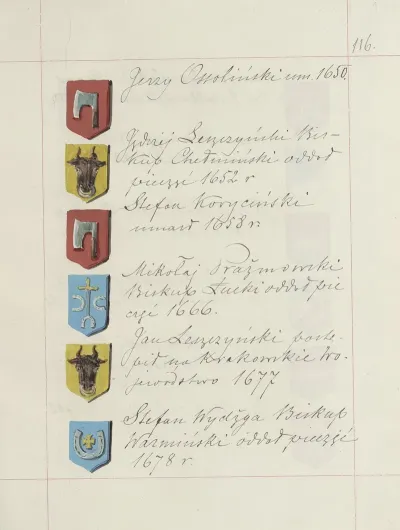 116.
Jerzy Ossoliński um. 1650.
Jędrzej Leszczyński Bis-
kup Chełmiński oddał
pieczęć 1652 r
Stefan Koryciński
umarł 1658 r.
Mikołaj Prażmowski
Biskup Łucki oddał pie
częć 1666.
Jan Leszczyński postą-
pił na Krakowskie Wo-
jewodztwo 1677
Stefan Wydżga Biskup
Warmiński oddał pieczęć
1678 r.